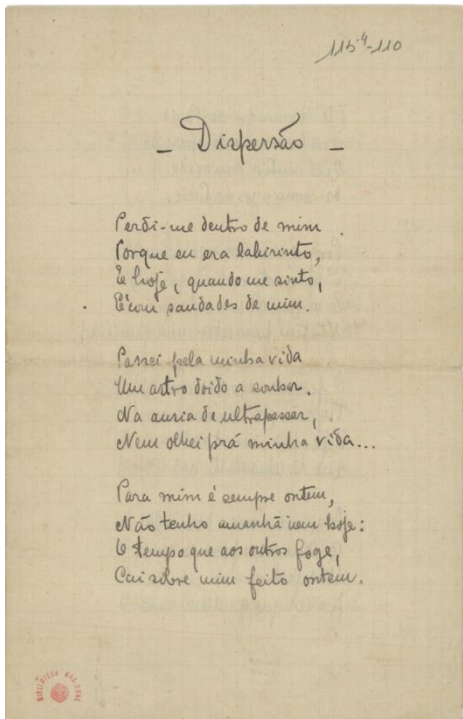 115⁴-110
- Dispersão -
Perdi-me dentro de mim
Porque eu era labirinto,
E hoje, quando me sinto,
É com saudades de mim.
Passei pela minha vida
Um astro doido a sonhar.
Na ansia de ultrapassar,
Nem olhei prá minha vida...
Para mim é sempre ontem,
Não tenho amanhã nem hoje:
O tempo que aos outros foge,
Cai sobre mim feito ontem.
BIBLIOTECA NACIONAL